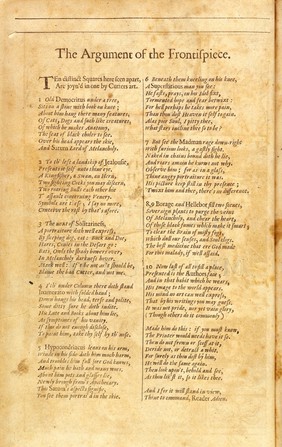 The Argument of the Frontispiece.
TEn distinct Squares here seen apart,
Are joyn'd in one by Cutters art.
1 Old Democritus under a tree,
Sits on a stone with book on knee;
About him hang there many features,
Of Cats, Dogs and such like creatures,
Of which he makes Anatomy,
The seat of black choler to see.
Over his head appears the skie,
And Saturn Lord of Melancholy.
2 To the left a landskip of Jealousie,
Presents it self unto thine eye.
A Kingfisher, a Swan, an Hern,
Two fighting Cocks you may discern,
Two roaring Bulls each other hie,
To assault concerning Venery.
Symbols are these; I say no more,
Conceive the rest by that's afore.
3 The next of Solitariness,
A portraiture doth well express,
By sleeping dog, cat: Buck and Doe,
Hares, Conies in the Desart go:
Bats, Owls the shady bowers over,
In Melancholy darkness hover.
Mark well: If't be not as't should be,
Blame the bad Cutter, and not me.
4 I'th under Column there doth stand
Inamorato with folded hand;
Down hangs his head, terse and polite,
Some ditty sure he doth indite.
His Lute and Books about him lie,
As symptomes of his vanity.
If this do not enough disclose,
To paint him, take thy self by th' nose.
5 Hypocondriacus leans on his arm,
Winde in his side doth him much harm,
And troubles him full sore God knows,
Much pain he hath and many woes.
About him pots and glasses lie,
Newly brought from's Apothecary.
This Saturn's aspects signifie,
You see them portraid in the skie.
6 Beneath them kneeling on his knee,
A Superstitious man you see:
He fasts, prays, on his Idol fixt,
Tormented hope and fear betwixt:
For hell perhaps he takes more pain,
Than thou dost Heaven it self to gain.
Alas poor Soul, I pitty thee,
What stars incline thee so to be?
7 But see the Madman rage down-right
With furious looks, a gastly sight.
Naked in chains bound doth he lie,
And roars amain he knows not why.
Observe him; for as in a glass,
Thine angry portraiture it was.
His picture keep still in thy presence;
'Twixt him and thee, there's no difference.
8,9 Borage and Hellebor fill two scenes,
Soveraign plants to purge the veins
Of Melancholy, and chear the heart,
Of those black fumes which make it smart;
To clear the Brain of misty fogs,
Which dull our senses, and Soul clogs.
The best medicine that ere God made
For this malady, if well assaid.
10 Now last of all to fill a place,
Presented is the Authors face;
And in that habit which he wears,
His Image to the world appears.
His minde no art can well express,
That by his writings you may guess.
It was not pride, nor yet vain glory,
(Though others do it commonly)
Made him do this: if you must know,
The Printer would needs have it so.
Then do not frown or scoff at it,
Deride not, or detract a whit,
For surely as thou dost by him,
He will do the same again.
Then look upon't, behold and see,
As thou lik'st it, so it likes thee.
And I for it will stand in view,
Thine to command, Reader Adieu.